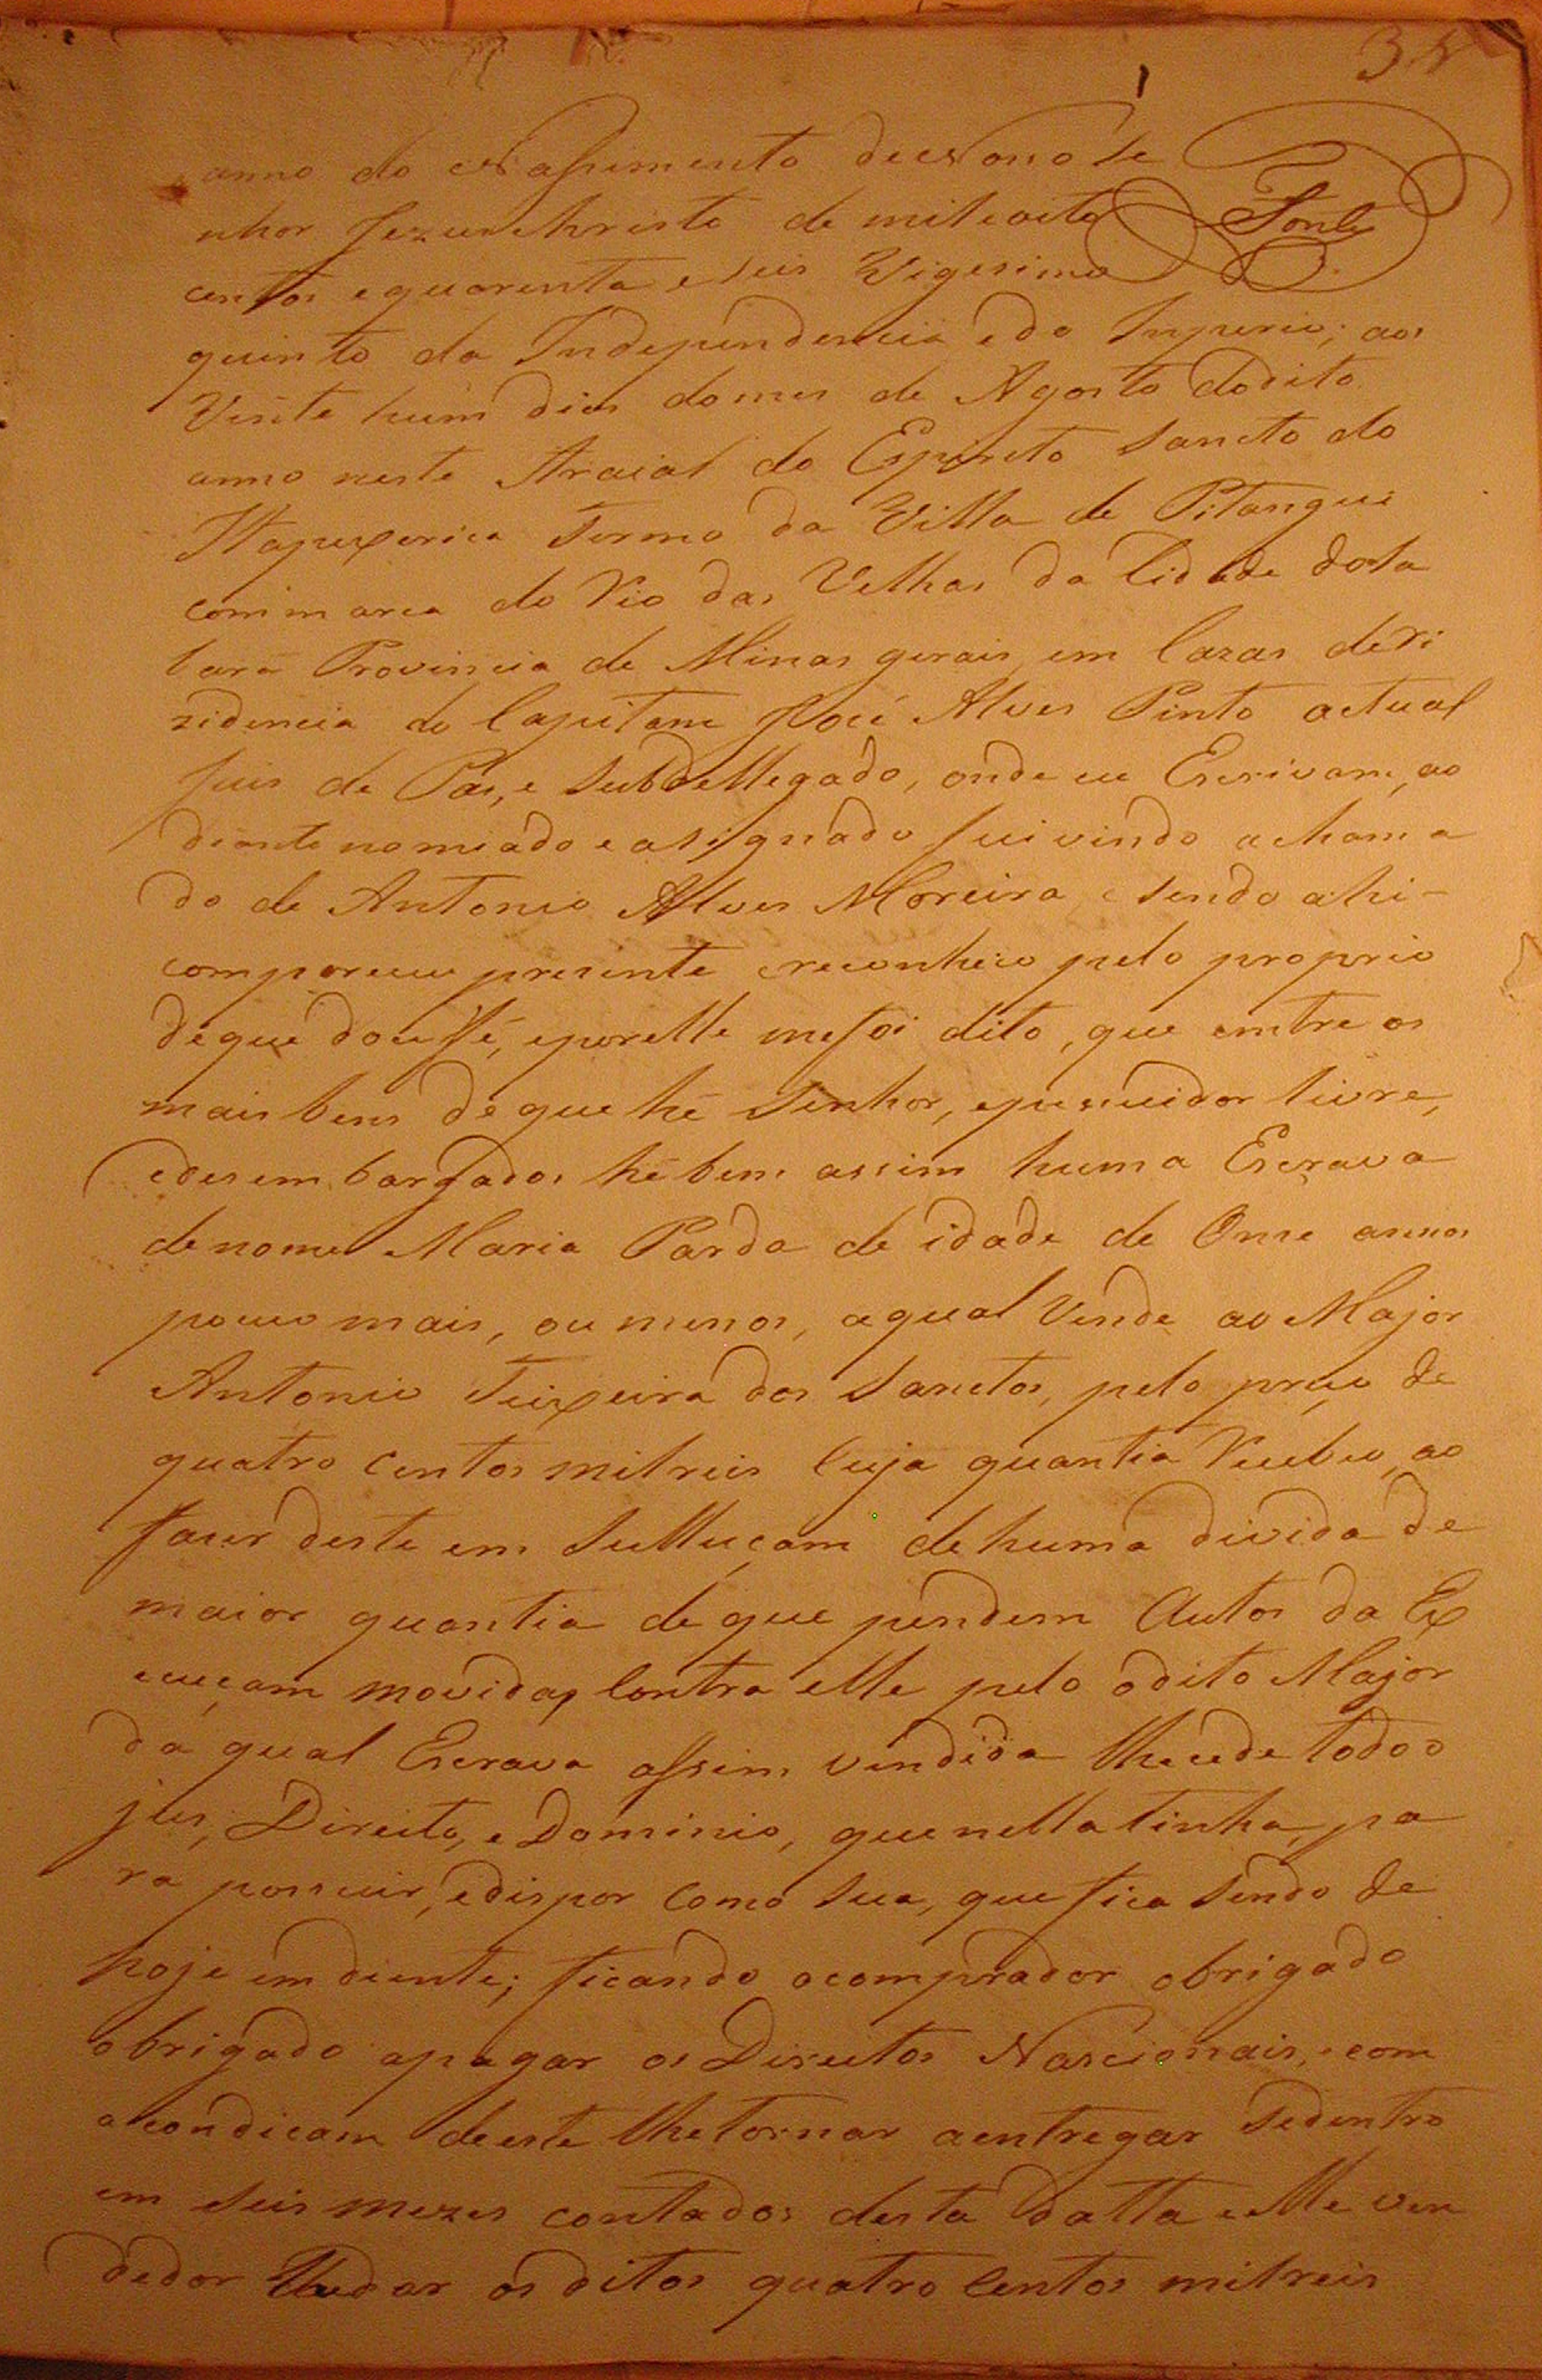 34
anno do Nassimento de Nosso Se
Fonte
nhor Jezus Christo de mil eoito
centos e quarenta e seis Vigesimo
quinto da Independencia e do Imperio; aos
Vinte hum dias do mes de Agosto do dito
anno neste Araial do Espirito Sancto do
Itapexerica Termo da Villa de Pitangui
commarca do Rio das Velhas da Cidade do Sa
bara Provincia de Minas gerais em Cazas de Ri
zidencia do Capitam José Alves Pinto actual
Juis de Pas, e Subdellegado, onde eu Escrivam, ao
diante nomiado e assignado fui vindo a chama
do de Antonio Alves Moreira e sendo ahi-
compareceu prezente e reconheco pelo proprio
de que dou fé, e por elle me foi dito, que emtre os
mais bens de que hé Senhor, e pussuidor livre,
e desembargados hé bem assim huma Escrava
de nome Maria Parda de idade de Onse annos
pouco mais, ou menos, a qual Vende ao Major
Antonio Teixeira dos Sanctos, pelo preço de
quatro centos mil reis Cuja quantia Recebeu ao
faser deste em Sulluçam de huma divida de
maior quantia de que pendem Autos da Ex
ecuçam movidas Contra elle pelo o dito Major
da qual Escrava assim vendida lhe cede todo o
jus, Direito, e Dominio, que nella tinha, pa
ra possuir, e dispor como sua, que fica sendo de
hoje em diente; ficando o comprador obrigado
obrigado apagar os Direitos Nascionais, e com
a condicam de este lhe tornar a entregar se dentro
em seis mezes contados desta datta elle ven
dedor lhe dar os ditos quatro centos mil reis